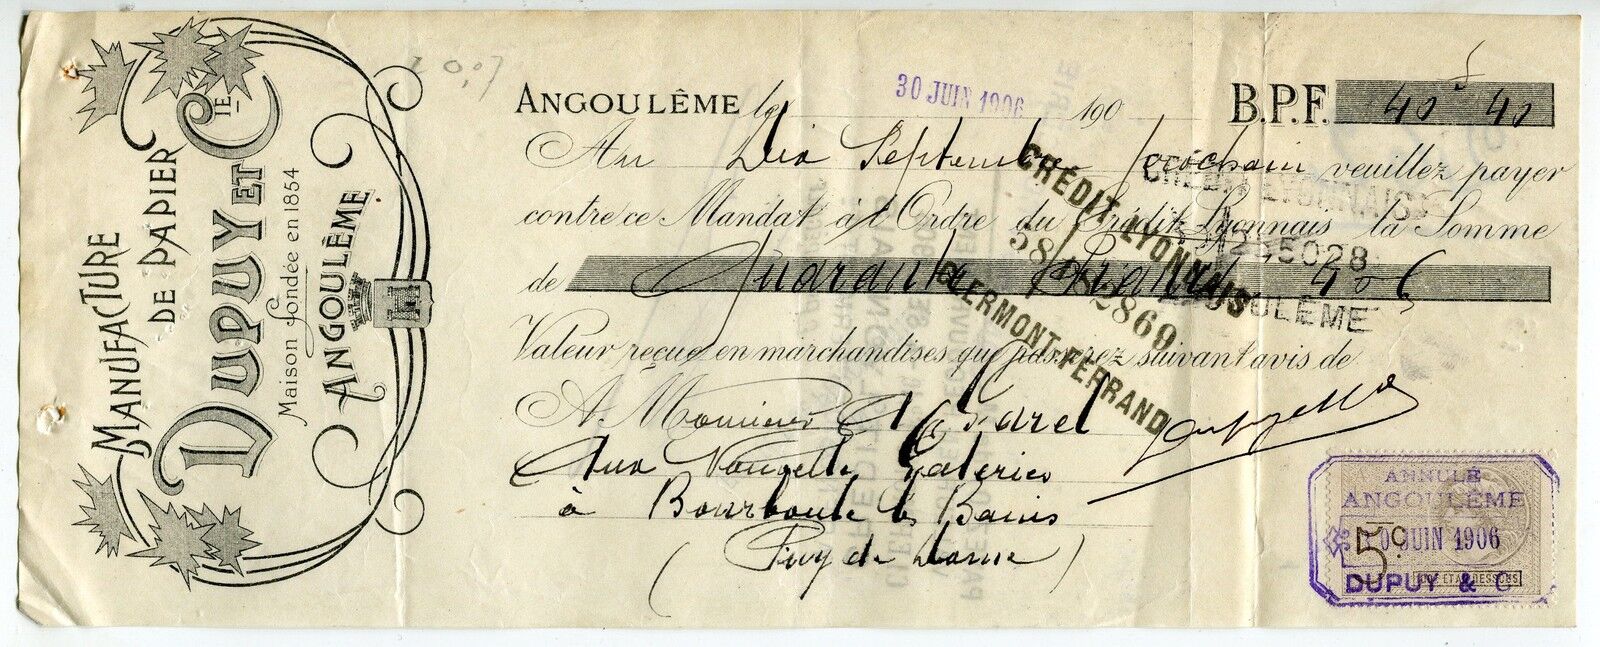 MANUFACTURE
DE PAPIER
DUPUY ET Cᴵᴱ
Maison fondée en 1854
ANGOULÊME
ANGOULÊME le 30 JUIN 1906 190
B.P.F. 40 40
Au Dix Septembre prochain veuillez payer
contre ce Mandat à l'Ordre du Crédit Lyonnais la Somme
de Quarante francs 40 c
Valeur reçue en marchandises que passerez suivant avis de
A Monsieur
Aux Nouvelle Galeries
à Bourboule les Bains
(Puy de Dome)
CRÉDIT LYONNAIS
CLERMONT-FERRAND
CRÉDIT LYONNAIS
ANGOULÊME
ANNULÉ
ANGOULÊME
30 JUIN 1906
DUPUY & Cᴵᴱ
5c